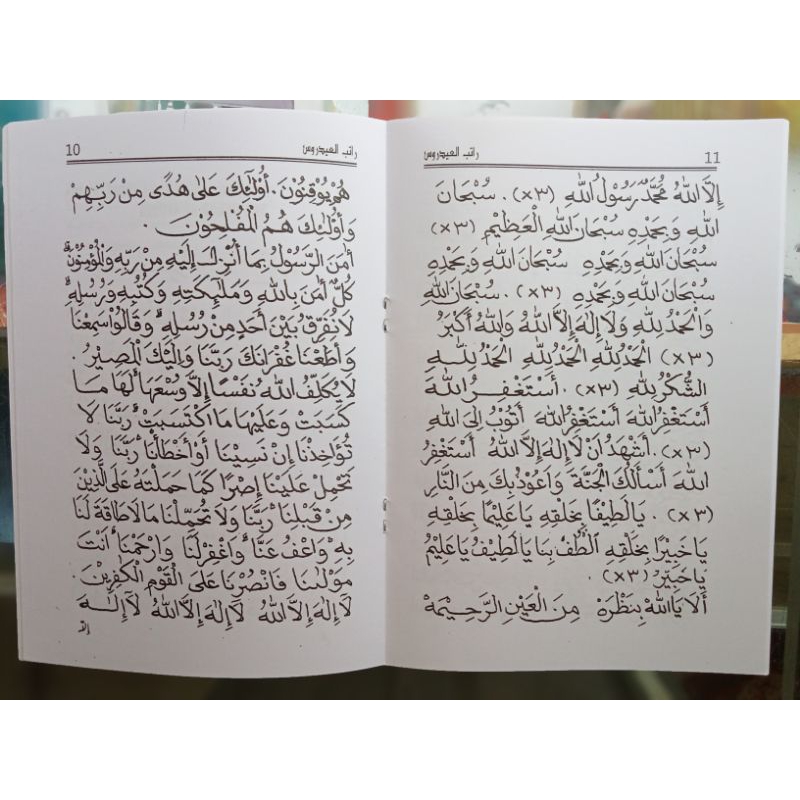 10 راتب العيدروس
هُمْ يُوْقِنُوْنَ. أُوْلٰٓئِكَ عَلٰى هُدًى مِنْ رَبِّهِمْ
وَأُوْلٰئِكَ هُمُ الْمُفْلِحُوْنَ.
أٰمَنَ الرَّسُوْلُ بِمَا أُنْزِلَ إِلَيْهِ مِنْ رَبِّهِ وَالْمُؤْمِنُوْنَ
كُلٌّ أٰمَنَ بِاللهِ وَمَلٰئِكَتِهِ وَكُتُبِهِ وَرُسُلِهِ
لَا نُفَرِّقُ بَيْنَ أَحَدٍ مِنْ رُسُلِهِ وَقَالُوْا سَمِعْنَا
وَأَطَعْنَا غُفْرَانَكَ رَبَّنَا وَإِلَيْكَ الْمَصِيْرُ.
لَا يُكَلِّفُ اللهُ نَفْسًا إِلَّا وُسْعَهَا لَهَا مَا
كَسَبَتْ وَعَلَيْهَا مَا اكْتَسَبَتْ رَبَّنَا لَا
تُؤَاخِذْنَا إِنْ نَسِيْنَا أَوْ أَخْطَأْنَا رَبَّنَا وَلَا
تَحْمِلْ عَلَيْنَا إِصْرًا كَمَا حَمَلْتَهُ عَلَى الَّذِيْنَ
مِنْ قَبْلِنَا رَبَّنَا وَلَا تُحَمِّلْنَا مَا لَا طَاقَةَ لَنَا
بِهِ وَاعْفُ عَنَّا وَاغْفِرْ لَنَا وَارْحَمْنَا أَنْتَ
مَوْلٰنَا فَانْصُرْنَا عَلَى الْقَوْمِ الْكٰفِرِيْنَ.
لَا إِلٰهَ إِلَّا اللهُ لَا إِلٰهَ إِلَّا اللهُ لَا إِلٰهَ
إلا
راتب العيدروس 11
إِلَّا اللهُ مُحَمَّدٌ رَسُوْلُ اللهِ (×٣). سُبْحَانَ
اللهِ وَبِحَمْدِهِ سُبْحَانَ اللهِ الْعَظِيْمِ (×٣)
سُبْحَانَ اللهِ وَبِحَمْدِهِ سُبْحَانَ اللهِ وَبِحَمْدِهِ
سُبْحَانَ اللهِ وَبِحَمْدِهِ (×٣). سُبْحَانَ اللهِ
وَالْحَمْدُ لِلّٰهِ وَلَا إِلٰهَ إِلَّا اللهُ وَاللهُ أَكْبَرُ
(×٣) الْحَمْدُ لِلّٰهِ الْحَمْدُ لِلّٰهِ الْحَمْدُ لِلّٰهِ
الشُّكْرُ لِلّٰهِ (×٣). أَسْتَغْفِرُ اللهَ
أَسْتَغْفِرُ اللهَ أَسْتَغْفِرُ اللهَ أَتُوْبُ إِلَى اللهِ
(×٣). أَشْهَدُ أَنْ لَا إِلٰهَ إِلَّا اللهُ أَسْتَغْفِرُ
اللهَ أَسْأَلُكَ الْجَنَّةَ وَأَعُوْذُ بِكَ مِنَ النَّارِ
(×٣). يَا لَطِيْفًا بِخَلْقِهِ يَا عَلِيْمًا بِخَلْقِهِ
يَا خَبِيْرًا بِخَلْقِهِ اُلْطُفْ بِنَا يَا لَطِيْفُ يَا عَلِيْمُ
يَا خَبِيْرُ (×٣).
أَلَا يَا اَللهُ بِنَظْرَةْ مِنَ الْعَيْنِ الرَّحِيْمَةْ